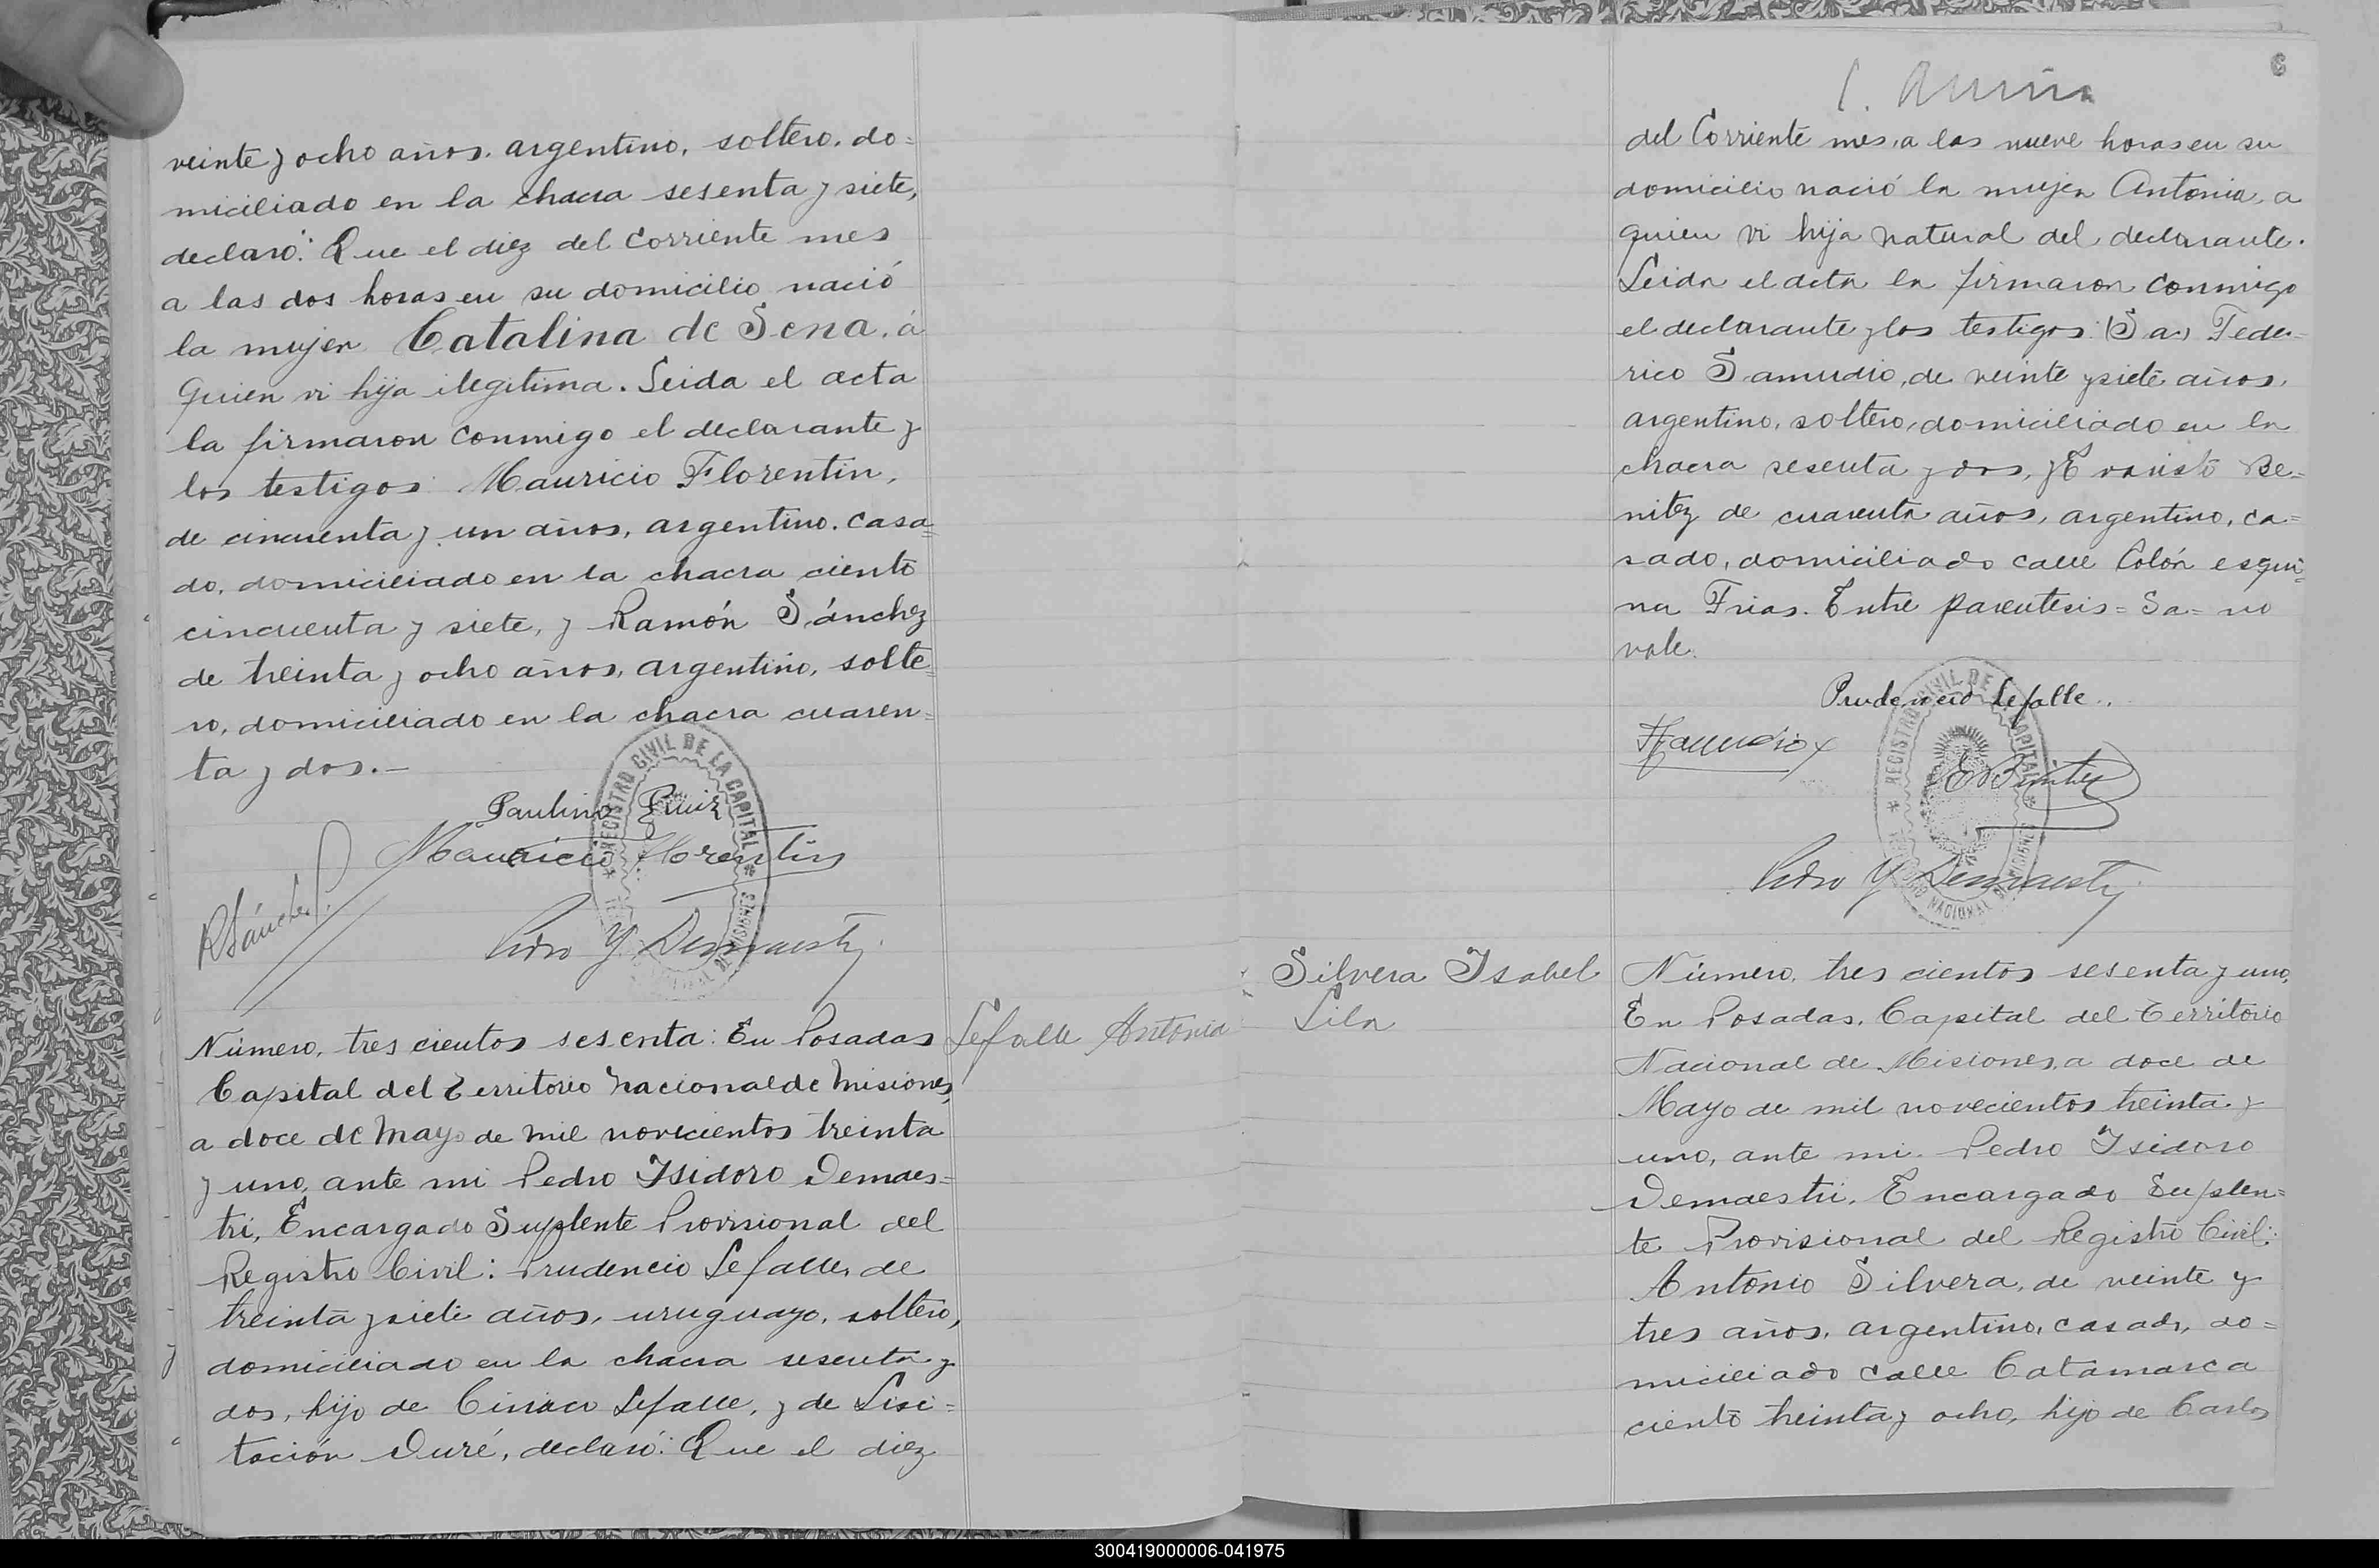 veinte y ocho años, argentino, soltero, do=
miciliado en la chacra sesenta y siete,
declaró: Que el diez del corriente mes
a las dos horas en su domicilio nació
la mujer Catalina de Sena, á
quien vi hija ilegitima. Leida el acta
la firmaron conmigo el declarante y
los testigos Mauricio Florentin,
de cincuenta y un años, argentino, casa=
do, domiciliado en la chacra ciento
cincuenta y siete, y Ramón Sánchez
de treinta y ocho años, argentino, solte=
ro, domiciliado en la chacra cuaren=
ta y dos.—
Paulino Ruiz
Mauricio Florentin
RSánchez
Pedro Y Demaestri
REGISTRO CIVIL DE LA CAPITAL
Lefalle Antonia
Número, tres cientos sesenta: En Posadas
Capital del Territorio Nacional de Misiones,
a doce de Mayo de mil novecientos treinta
y uno, ante mi Pedro Isidoro Demaes=
tri, Encargado Suplente Provisional del
Registro Civil: Prudencio Lefalle, de
treinta y siete años, uruguayo, soltero,
domiciliado en la chacra sesenta y
dos, hijo de Ciriaco Lefalle, y de Lisi=
tación Duré, declaró: Que el diez
6
del Corriente mes, a las nueve horas en su
domicilio nació la mujer Antonia, a
quien vi hija natural del declarante.
Leida el acta la firmaron conmigo
el declarante y los testigos: (Sa) Fede=
rico Samudio, de veinte y siete años,
argentino, soltero, domiciliado en la
chacra sesenta y dos, y Evaristo Be=
nitez de cuarenta años, argentino, ca=
sado, domiciliado calle Colón esqui=
na Frias. Entre parentesis = Sa = no
vale.
Prudencio Lefalle..
FSamudio
E Benitez
Pedro Y Demaestri
REGISTRO CIVIL DE LA CAPITAL
Silvera Isabel
Lila
Número, tres cientos sesenta y uno,
En Posadas, Capital del Territorio
Nacional de Misiones, a doce de
Mayo de mil novecientos treinta y
uno, ante mi Pedro Isidoro
Demaestri, Encargado Suplen=
te Provisional del Registro Civil:
Antonio Silvera, de veinte y
tres años, argentino, casado, do=
miciliado calle Catamarca
ciento treinta y ocho, hijo de Carlos
300419000006-041975